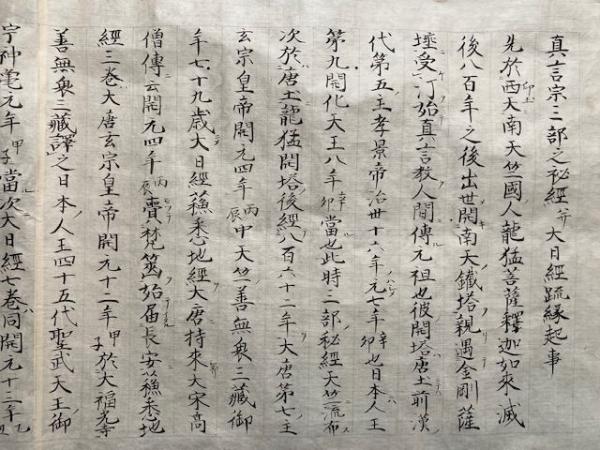 真言宗三部之秘經等 大日經疏縁起事
先於西大南天竺國人龍猛菩薩釋迦如来滅
後八百年之後出世開南天鐵塔親遇金剛薩
埵受汀始真言教人間傳元祖也彼開塔唐土前漢
代第五王孝景帝治世十六年元七年辛卯也日本人王
第九開化天王八年辛卯當也此時三部秘經天竺流布
次於唐土龍猛開塔後經八百六十二年大唐第七主
玄宗皇帝開元四年丙辰中天竺善無畏三藏御
年七十九歳大日經蘇悉地經大唐持来大宋高
僧傳云開元四年丙辰賷梵篋始届長安蘇悉地
經三巻大唐玄宗皇帝開元十二年甲子於大福光寺
善無畏三藏譯之日本人王四十五代聖武天王御
宇神亀元年甲子當次大日經七巻同開元十三年乙丑